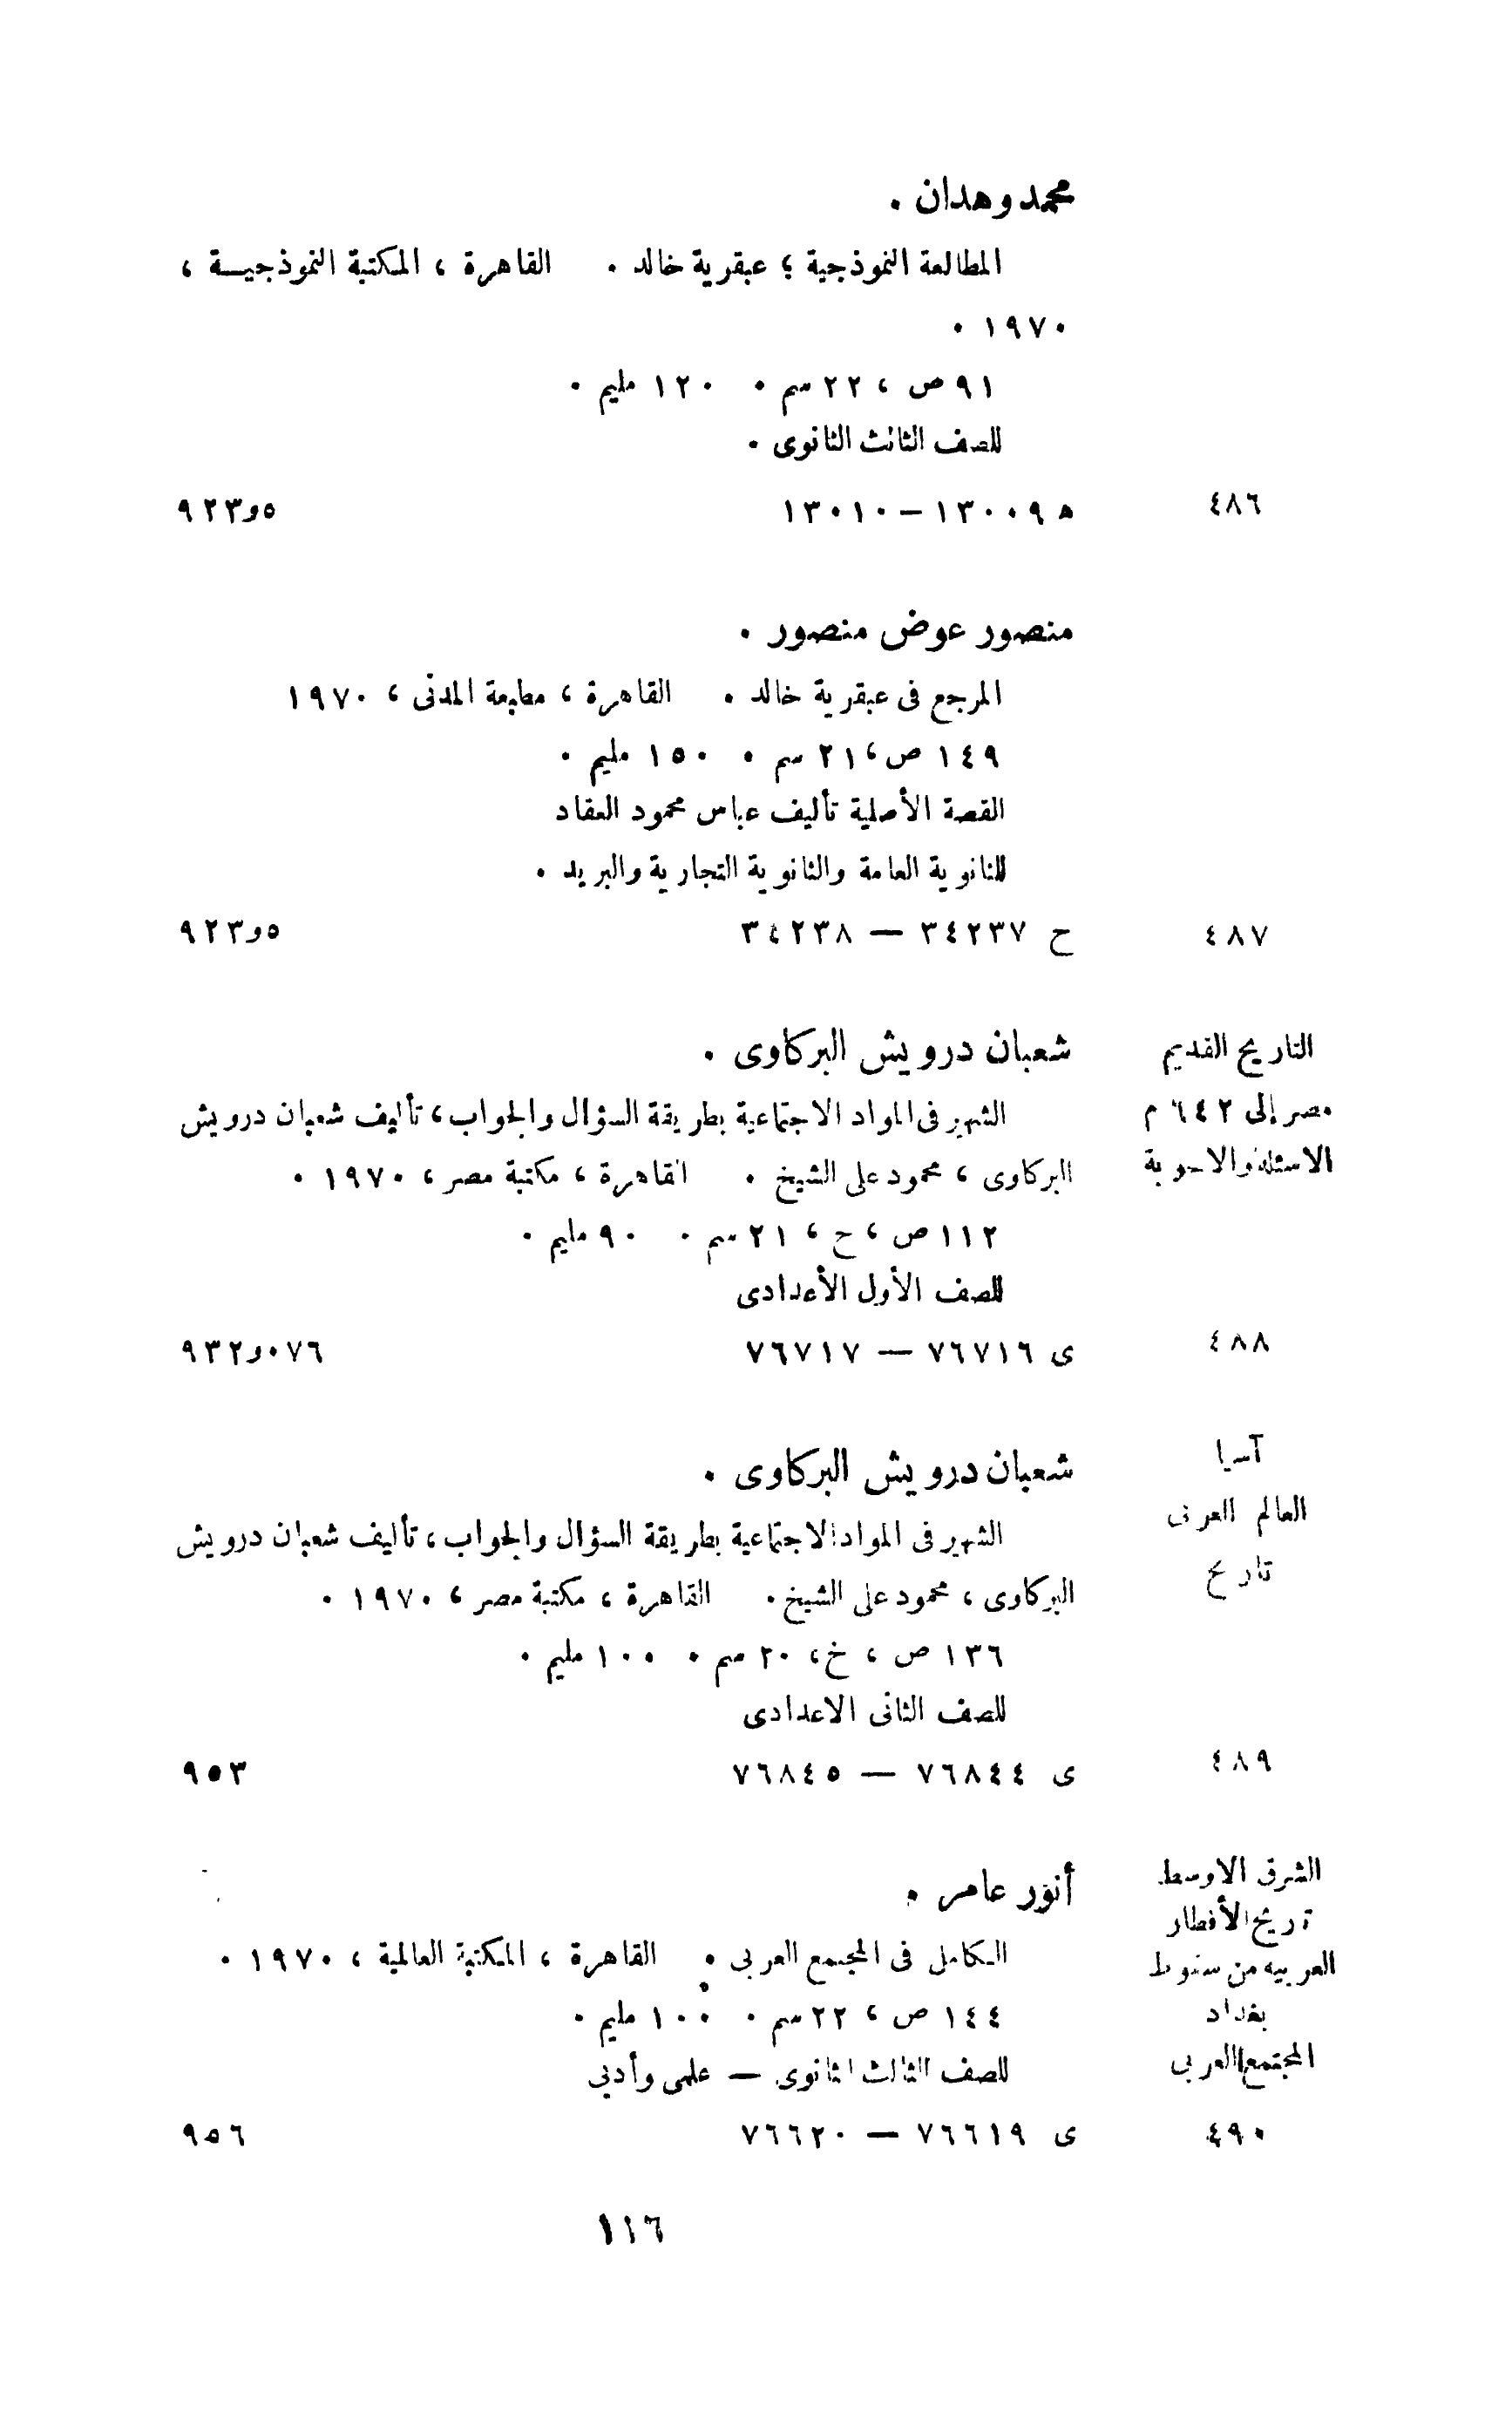 محمد وهدان .
المطالعة النموذجية ؛ عبقرية خالد . القاهرة ، المكتبة النموذجيــة ،
١٩٧٠ .
٩١ ص ، ٢٢ سم . ١٢٠ مليم .
للصف الثالث الثانوى .
٤٨٦ ه ١٣٠٠٩ – ١٣٠١٠ ٩٢٣و٥
منصور عوض منصور .
المرجع فى عبقرية خالد . القاهرة ، مطبعة المدنى ، ١٩٧٠
١٤٩ ص ، ٢١ سم . ١٥٠ مليم .
القصة الأصلية تأليف عباس محمود العقاد
للثانوية العامة والثانوية التجارية والبريد .
٤٨٧ ح ٣٤٢٣٧ – ٣٤٢٣٨ ٩٢٣و٥
التاريخ القديم
مصر إلى ٦٤٢ م
الاسئلة والاجوبة
شعبان درويش البركاوى .
الشهير فى المواد الاجتماعية بطريقة السؤال والجواب ، تأليف شعبان درويش
البركاوى ، محمود على الشيخ . القاهرة ، مكتبة مصر ، ١٩٧٠ .
١١٢ ص ، ح ، ٢١ سم . ٩٠ مليم .
للصف الأول الأعدادى
٤٨٨ ى ٧٦٧١٦ – ٧٦٧١٧ ٩٣٢و٠٧٦
آسيا
العالم العربى
تاريخ
شعبان درويش البركاوى .
الشهير فى المواد الاجتماعية بطريقة السؤال والجواب ، تأليف شعبان درويش
البركاوى ، محمود على الشيخ . القاهرة ، مكتبة مصر ، ١٩٧٠ .
١٣٦ ص ، خ ، ٢٠ سم . ١٠٠ مليم .
للصف الثانى الاعدادى
٤٨٩ ى ٧٦٨٤٤ – ٧٦٨٤٥ ٩٥٣
الشرق الاوسط
تاريخ الأقطار
العربيه من سقوط
بغداد
المجتمع العربى
أنور عامر .
الكامل فى المجتمع العربى . القاهرة ، المكتبة العالمية ، ١٩٧٠ .
١٤٤ ص ، ٢٢ سم . ١٠٠ مليم .
للصف الثالث الثانوى – علمى وأدبى
٤٩٠ ى ٧٦٦١٩ – ٧٦٦٢٠ ٩٥٦
١١٦